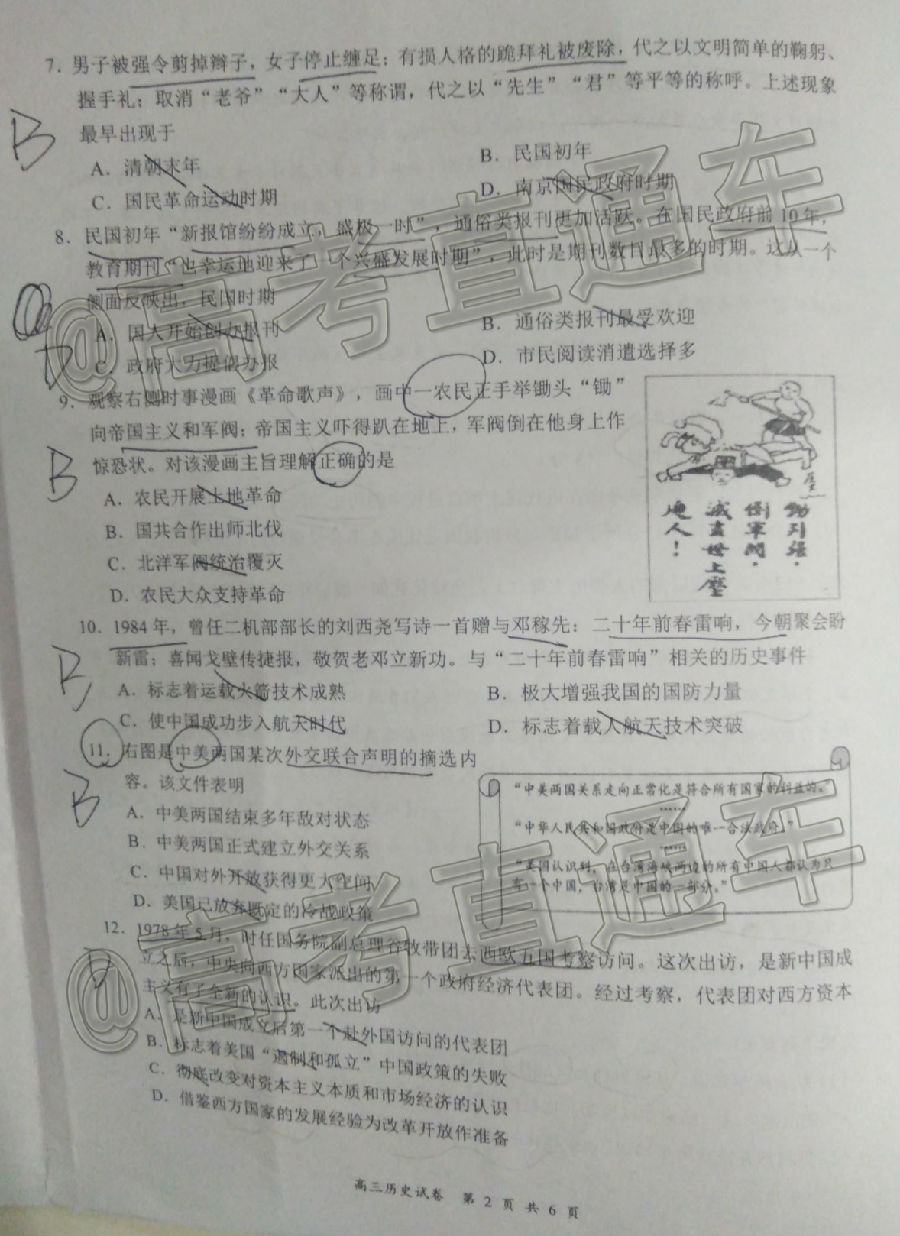 7. 男子被强令剪掉辫子，女子停止缠足；有损人格的跪拜礼被废除，代之以文明简单的鞠躬、
握手礼；取消“老爷”“大人”等称谓，代之以“先生”“君”等平等的称呼。上述现象
最早出现于
B
A. 清朝末年
B. 民国初年
C. 国民革命运动时期
D. 南京国民政府时期
8. 民国初年“新报馆纷纷成立，盛极一时”，通俗类报刊更加活跃。在国民政府前10年，
教育期刊“也幸运地迎来了一个兴盛发展时期”，此时是期刊数目最多的时期。这从一个
侧面反映出，民国时期
A. 国人开始创办报刊
B. 通俗类报刊最受欢迎
C. 政府大力提倡办报
D. 市民阅读消遣选择多
D
9. 观察右侧时事漫画《革命歌声》，画中一农民正手举锄头“锄”
向帝国主义和军阀；帝国主义吓得趴在地上，军阀倒在他身上作
惊恐状。对该漫画主旨理解正确的是
B
A. 农民开展土地革命
B. 国共合作出师北伐
C. 北洋军阀统治覆灭
D. 农民大众支持革命
倒军阀，
灭尽世上
人！
10. 1984年，曾任二机部部长的刘西尧写诗一首赠与邓稼先：二十年前春雷响，今朝聚会盼
新雷；喜闻戈壁传捷报，敬贺老邓立新功。与“二十年前春雷响”相关的历史事件
B
A. 标志着运载火箭技术成熟
B. 极大增强我国的国防力量
C. 使中国成功步入航天时代
D. 标志着载人航天技术突破
11. 右图是中美两国某次外交联合声明的摘选内
容。该文件表明
B
A. 中美两国结束多年敌对状态
B. 中美两国正式建立外交关系
C. 中国对外开放获得更大空间
D. 美国已放弃既定的冷战政策
“中美两国关系走向正常化是符合所有国家的利益的。”
……
“中华人民共和国政府是中国的唯一合法政府。”
……
“美国认识到，在台湾海峡两边的所有中国人都认为只
有一个中国，台湾是中国的一部分。”
12. 1978年5月，时任国务院副总理谷牧带团去西欧五国考察访问。这次出访，是新中国成
立之后，中央向西方国家派出的第一个政府经济代表团。经过考察，代表团对西方资本
主义有了全新的认识。此次出访
D
A. 是新中国成立后第一个赴外国访问的代表团
B. 标志着美国“遏制和孤立”中国政策的失败
C. 彻底改变对资本主义本质和市场经济的认识
D. 借鉴西方国家的发展经验为改革开放作准备
高三历史试卷 第2页 共6页
@高考直通车
@高考直通车